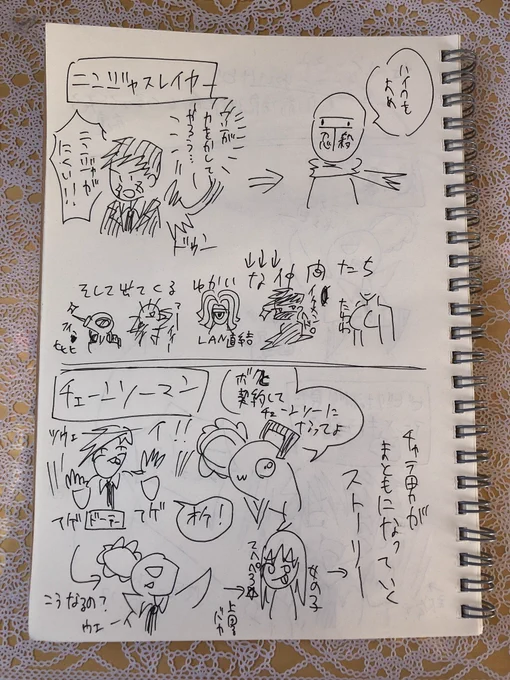 ニンジャスレイヤー
ニンジャが
にくい!!
ワシが
力をかして
やろう…
ドゥン
忍殺
ハイクを
よめ
そして出てくる
ゆかいな仲間たち
LAN直結
チェーンソーマン
ボクと
契約して
チェーンソーに
なってよ
ウェーイ!!
テゲ
テゲ
オケ!
こうなるの?
ウェーイ
女の子
チャラ男が
まともになっていく
ストーリー